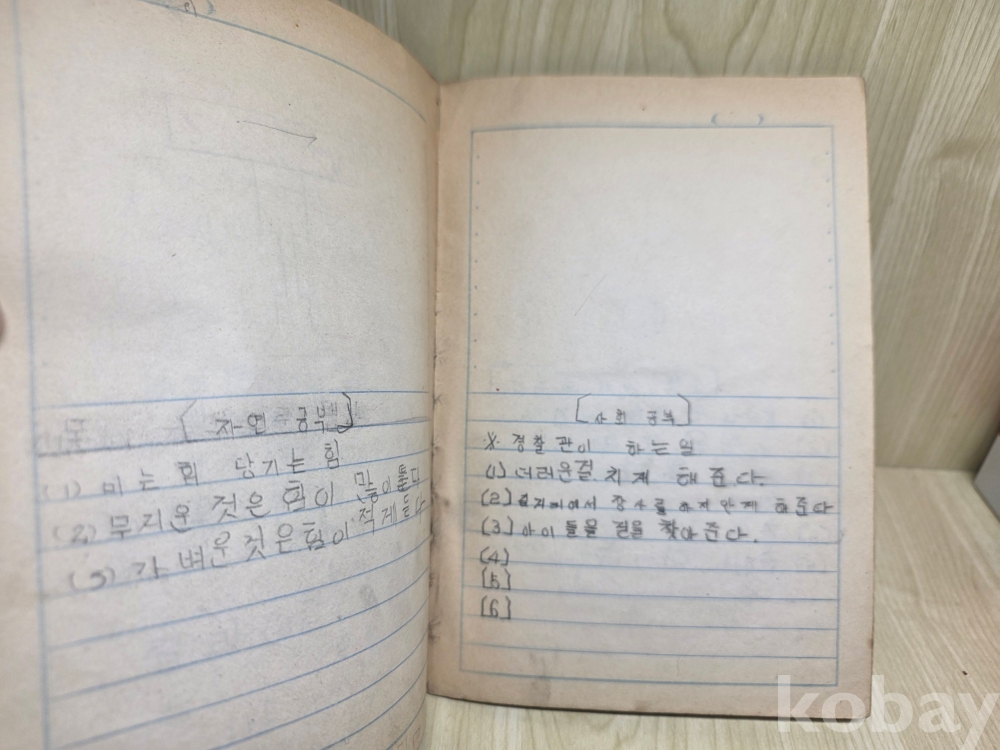 [자연 공부]
(1) 미는 힘 당기는 힘
(2) 무거운 것은 힘이 많이 든다
(3) 가벼운 것은 힘이 적게 든다
( )
[사회 공부]
※ 경찰관이 하는일
(1) 더러운걸 치게 해준다.
(2) 장사를 하지 안게 해준다
(3) 아이들을 길을 찾아준다.
(4)
[5]
[6]
kobay